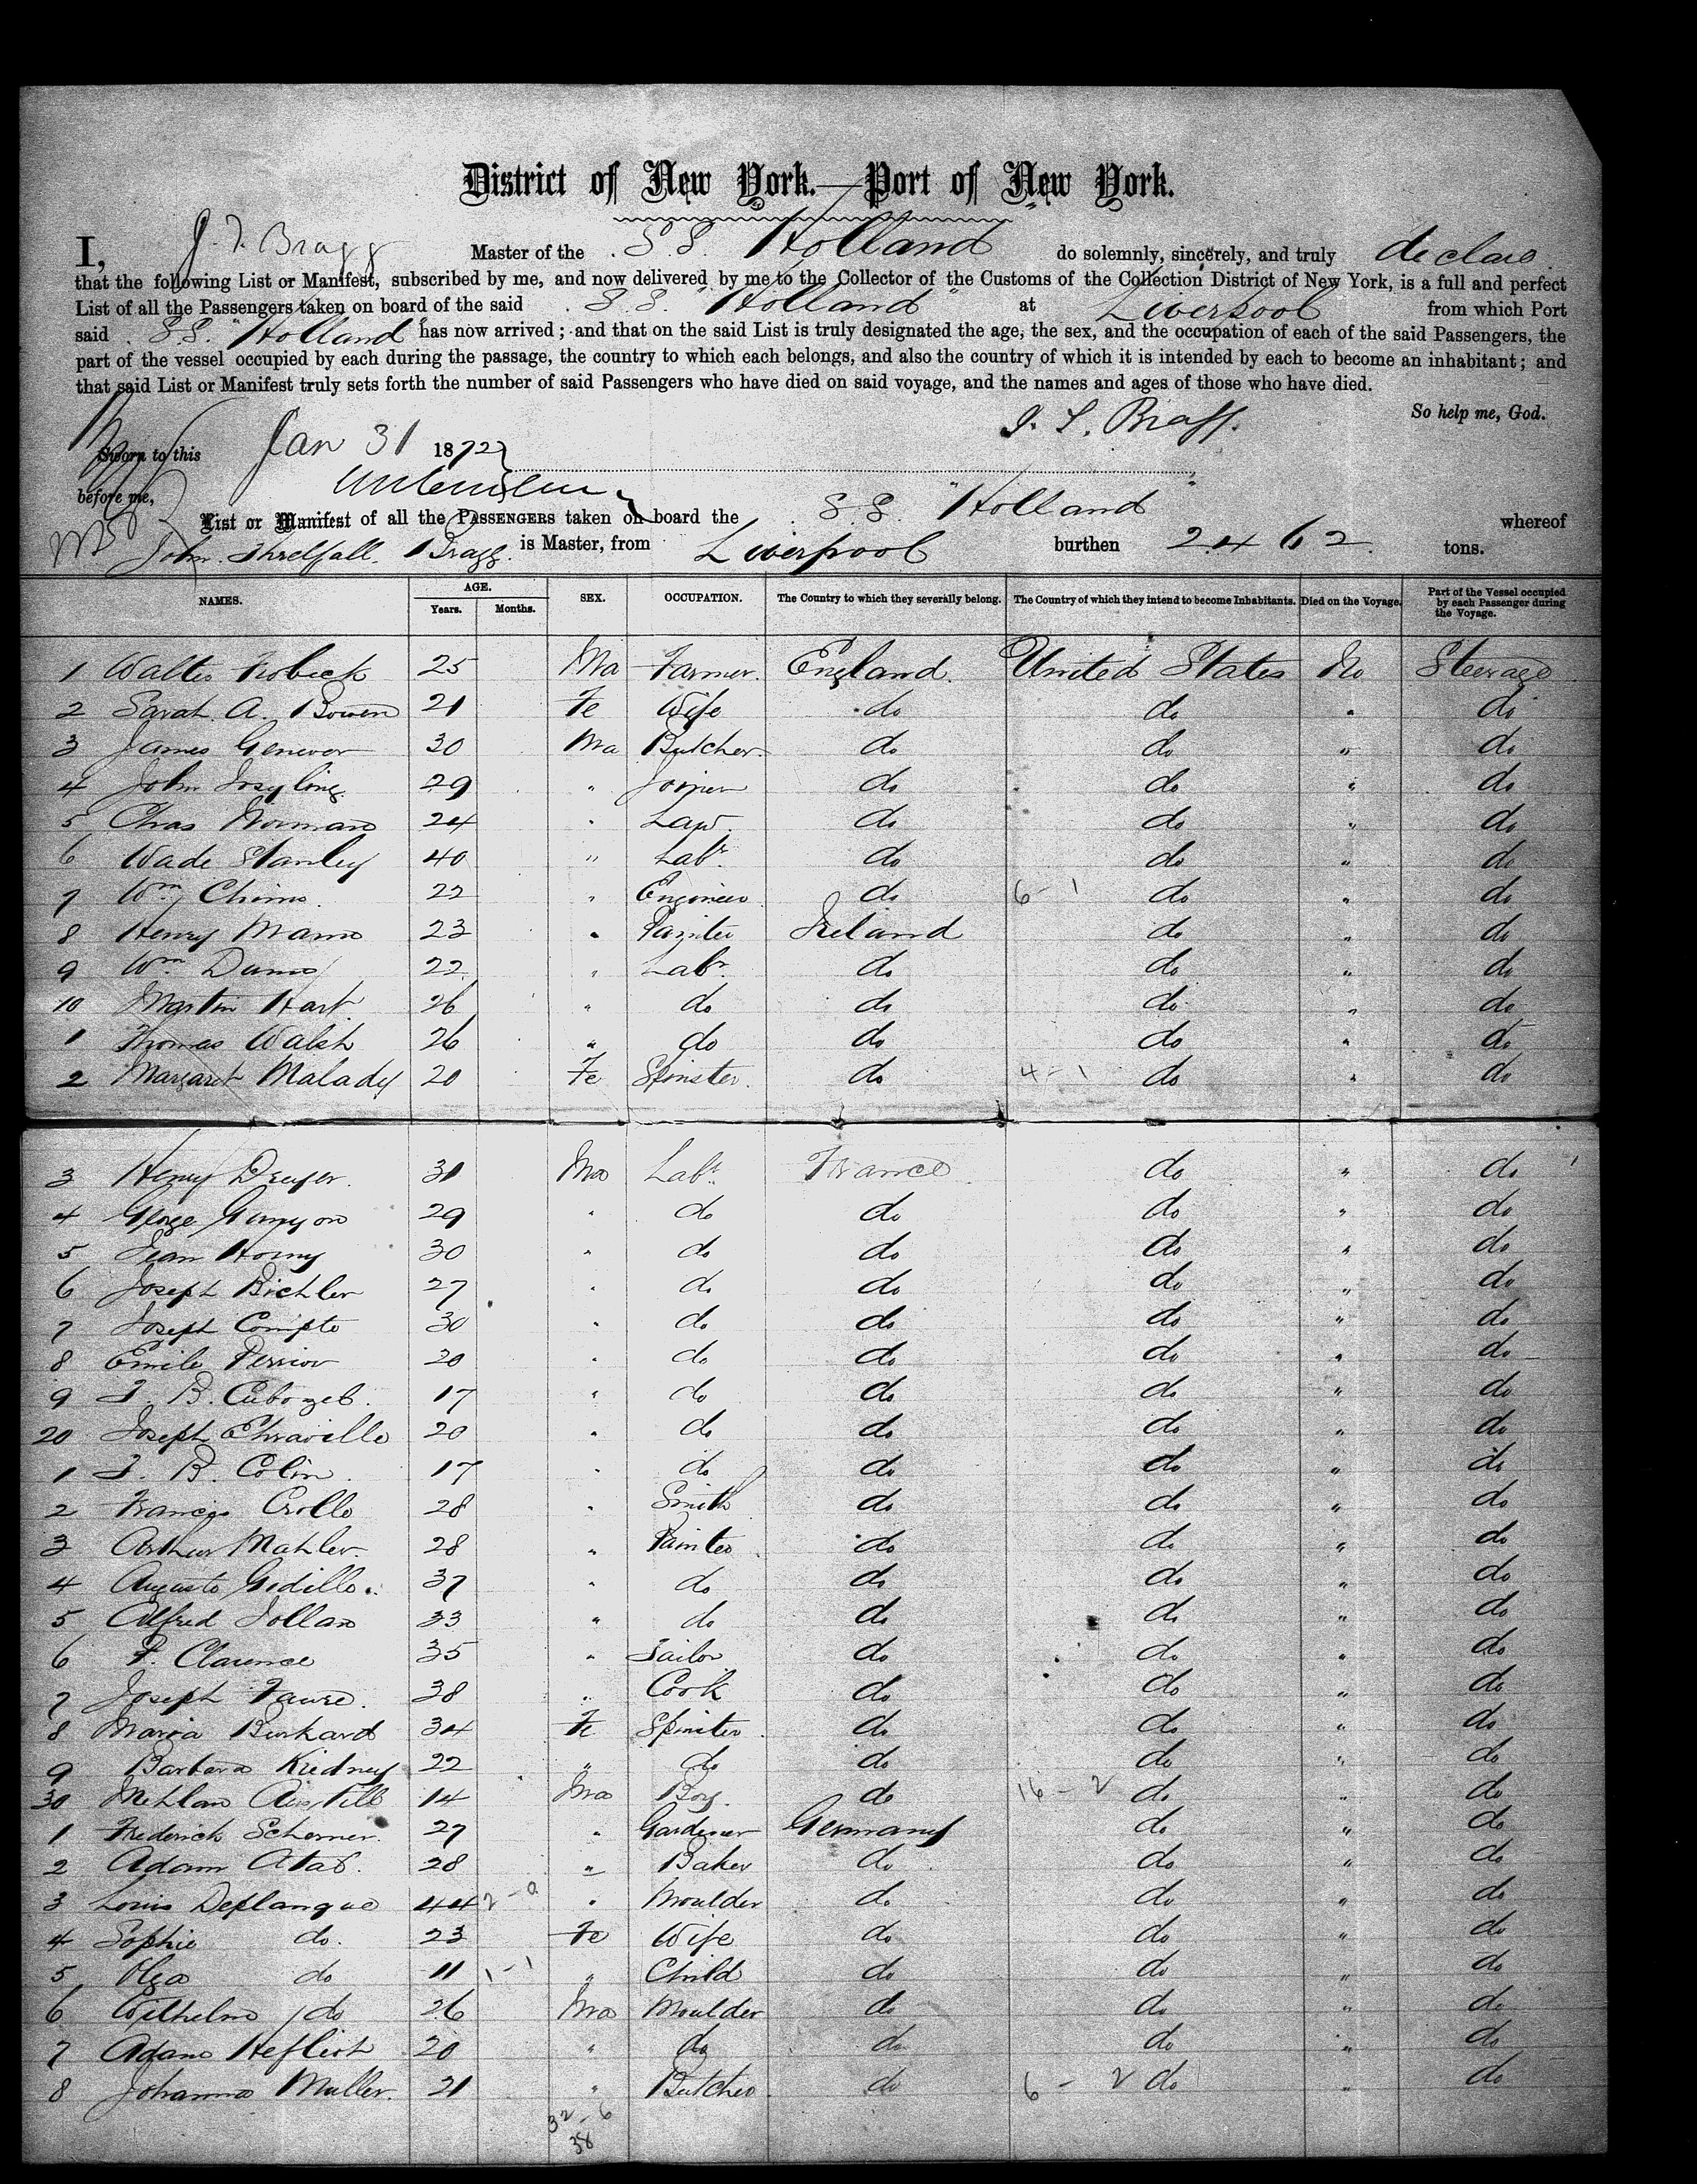 District of New York.—Port of New York.
I, J. T. Bragg Master of the S.S. Holland do solemnly, sincerely, and truly declare
that the following List or Manifest, subscribed by me, and now delivered by me to the Collector of the Customs of the Collection District of New York, is a full and perfect
List of all the Passengers taken on board of the said S.S. "Holland" at Liverpool from which Port
said S.S. "Holland" has now arrived; and that on the said List is truly designated the age, the sex, and the occupation of each of the said Passengers, the
part of the vessel occupied by each during the passage, the country to which each belongs, and also the country of which it is intended by each to become an inhabitant; and
that said List or Manifest truly sets forth the number of said Passengers who have died on said voyage, and the names and ages of those who have died.
So help me, God.
Sworn to this Jan 31 1872
before me,
List or Manifest of all the PASSENGERS taken on board the S.S. "Holland" whereof
John Threlfall Bragg is Master, from Liverpool burthen 2462 tons.
NAMES. AGE. Years. Months. SEX. OCCUPATION. The Country to which they severally belong. The Country of which they intend to become Inhabitants. Died on the Voyage. Part of the Vessel occupied by each Passenger during the Voyage.
1 Walter 25 Ma Farmer. England. United States No Steerage
2 Sarah A. Bowen 21 Fe Wife do do " do
3 James Genevor 30 Ma Butcher do do " do
4 John 29 " Joiner do do " do
5 Chas Norman 24 " Law. do do " do
6 Wade Stanley 40 " Labr. do do " do
7 Wm Chims 22 " Engineer do 6-1 do " do
8 Henry Mann 23 " Painter Ireland do " do
9 Wm 22 " Labr. do do " do
10 Martin Hart. 26 " do do do " do
1 Thomas Walsh 26 " do do do " do
2 Margaret Malady 20 Fe Spinster. do 4-1 do " do
3 Henry Dreyer. 31 Ma Labr. France do " do
4 George 29 " do do do " do
5 Jean Horny 30 " do do do " do
6 Joseph Bichler 27 " do do do " do
7 Joseph Compte 30 " do do do " do
8 Emile Perrior 20 " do do do " do
9 J. B. 17 " do do do " do
20 Joseph 20 " do do do " do
1 J. B. Colin 17 " do do do " do
2 Francis Crolle 28 " Smith do do " do
3 Arthur Mahler. 28 " Painter do do " do
4 Auguste Godillo. 37 " do do do " do
5 Alfred Jollan 33 " do do do " do
6 P. Clarence 35 " Tailor do do " do
7 Joseph Faure. 38 " Cook do do " do
8 Maria Burkard 34 Fe Spinster do do " do
9 Barbara Kridney 22 " do do do " do
30 14 Ma Boy. do 16-2 do " do
1 Frederick Scherner. 27 " Gardener Germany do " do
2 Adam 28 " Baker do do " do
3 Louis Deplanque 44 2-0 " Moulder do do " do
4 Sophie do. 23 Fe Wife do do " do
5 Olga do 11 1-1 " Child do do " do
6 Wilhelm do 26 Ma Moulder do do " do
7 Adam Heflich 20 " do do do " do
8 Johanna Muller. 21 " Butcher do 6-2 do " do
32-6
38